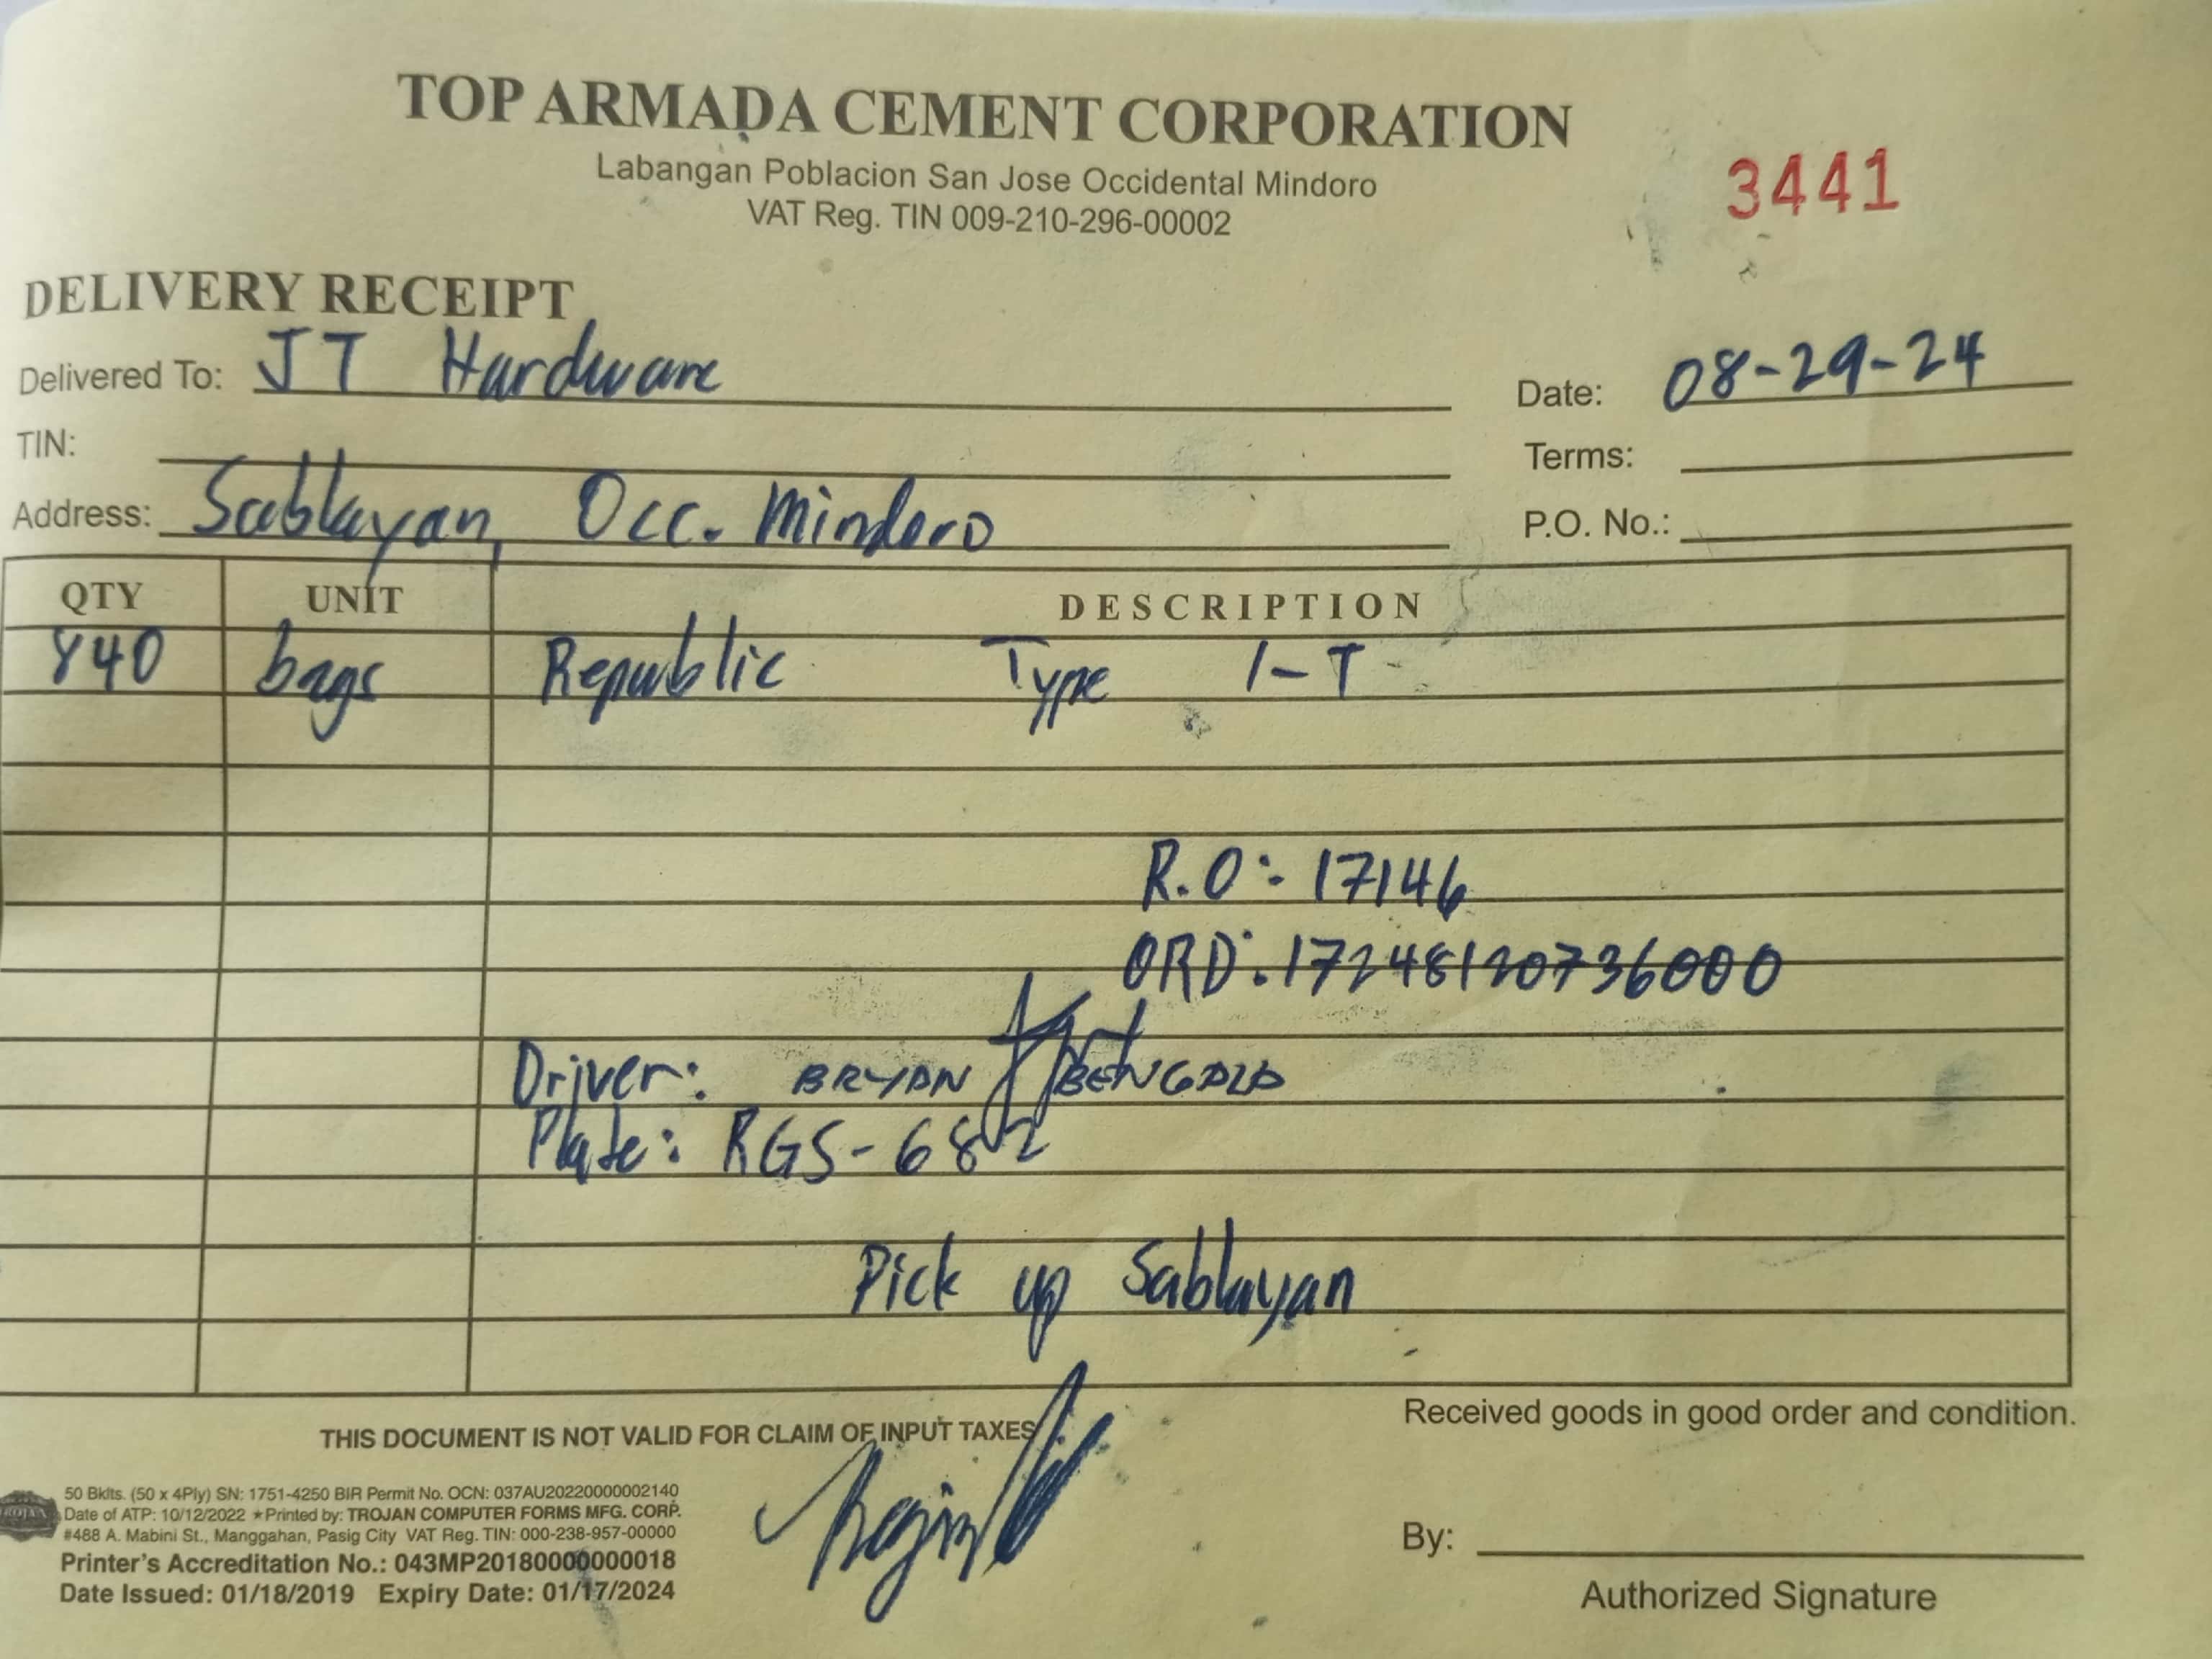 TOP ARMADA CEMENT CORPORATION
Labangan Poblacion San Jose Occidental Mindoro
VAT Reg. TIN 009-210-296-00002
3441
DELIVERY RECEIPT
Delivered To: JT Hardware
Date: 08-29-24
TIN:
Terms:
Address: Sablayan, Occ. Mindoro
P.O. No.:
QTY UNIT DESCRIPTION
840 bags Republic Type 1-T
R.O: 17146
ORD: 17248120736000
Driver: BRYAN BENGALD
Plate: RGS-682
Pick up Sablayan
THIS DOCUMENT IS NOT VALID FOR CLAIM OF INPUT TAXES
Received goods in good order and condition.
50 Bklts. (50 x 4Ply) SN: 1751-4250 BIR Permit No. OCN: 037AU20220000002140
Date of ATP: 10/12/2022 ★Printed by: TROJAN COMPUTER FORMS MFG. CORP.
#488 A. Mabini St., Manggahan, Pasig City VAT Reg. TIN: 000-238-957-00000
Printer's Accreditation No.: 043MP20180000000018
Date Issued: 01/18/2019 Expiry Date: 01/17/2024
TROJAN
By:
Authorized Signature